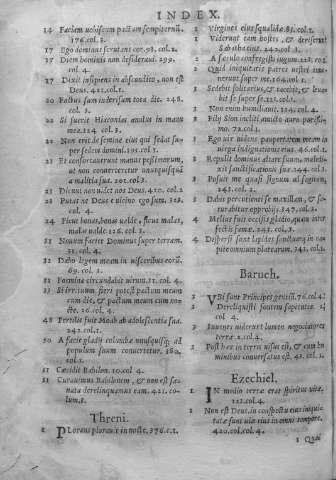 INDEX.
14 Faciem vobiscum pactum sempiternū,
176. col. 1.
17 Ego dominus scrutans cor. 98. col. 1.
17 Diem hominis non desideraui. 299.
col. 4.
17 Dixit insipiens in
Deus. 421. col. 1.
20 Factus sum in derisum tota die. 248.
col. 3.
22 Si fuerit Hieconias anulus in manu
mea. 124 col. 3.
22 Non erit de semine eius qui sedeat super
sedem
23 Et confortauerunt manus pessimorum,
vt non conuerteretur vnusquisque
a malitia sua. 201. col. 3.
23 Dicunt non videt nos Deus. 410. col. 2
23 Putas ne Deus e vicino ego sum. 323.
col. 4.
24 Ficus bonas, bonas valde, ficus malas,
malas valde. 126. col. 3.
31 Nouum faciet Dominus super terram.
31. col. 4.
31 Dabo legem meam in visceribus eorū.
69. col. 1.
31 Foemina circundabit virum. 71. col. 4.
33 Si irritum fieri potest pactum meum
cum die, & pactum meum cum nocte.
26. col. 4.
48 Fertilis fuit Moab ab adolescentia sua.
241. col. 1.
50 A facie gladij columbæ vnusquisq; ad
populum suum conuertetur. 180.
col. 1.
51 Cæcidit Babilon. 10. col. 4.
51 Curauimus Babilonem, & non est sanata
derelinquamus eam. 421. colum.
Threni.
1 PLorans plorauit in nocte. 376. c. 1.
1 Virgines eius squalidæ. 81. col. 1.
1 Viderunt eam hostes, & deriserunt
Sabatha eius. 242. col. 3.
2 A sæculo confregisti iugum. 121. col. 2
2 Quid iniquitatis patres nostri inuenerunt
super me. 164. col. 1.
3 Sedebit solitarius, & tacebit, & leuabit
se super se. 121. col. 1.
3 Non enim humiliauit. 104. col. 4.
4 Filij Sion inclyti, amicti auro purissimo.
72. col. 1.
3 Ego vir videns paupertatem meam in
virga indignationis eius. 46. col. 1.
2 Repulit dominus altare suum, maledixit
sanctificationi suæ. 244. col. 1.
3 Posuit me quasi signum ad sagittam.
243. col. 1.
3 Dabit percutienti se maxillam, & saturabitur
opprobrijs. 347. col. 3.
4 Melius fuit occisis gladio, quam interfectis
fame. 243. col. 3.
4 Dispersi sunt lapides sanctuarij in capite
omnium platearum. 341. col. 1.
Baruch.
3 VBi sunt Principes gentiū. 76. col. 4
3 Dereliquisti fontem sapientiæ.
col. 4.
3 Iuuenes viderunt lumen
terræ
3 Post hæc in terris visus est, & cum hominibus
conuersatus est. 42. col. 2.
Ezechiel.
1 IN medio terræ erat spiritus vitæ.
122. col. 4.
2 Non est Deus, in conspectu eius iniquitatæ
sunt viæ eius in omni tempore.
420. col. 4.
1 Quasi